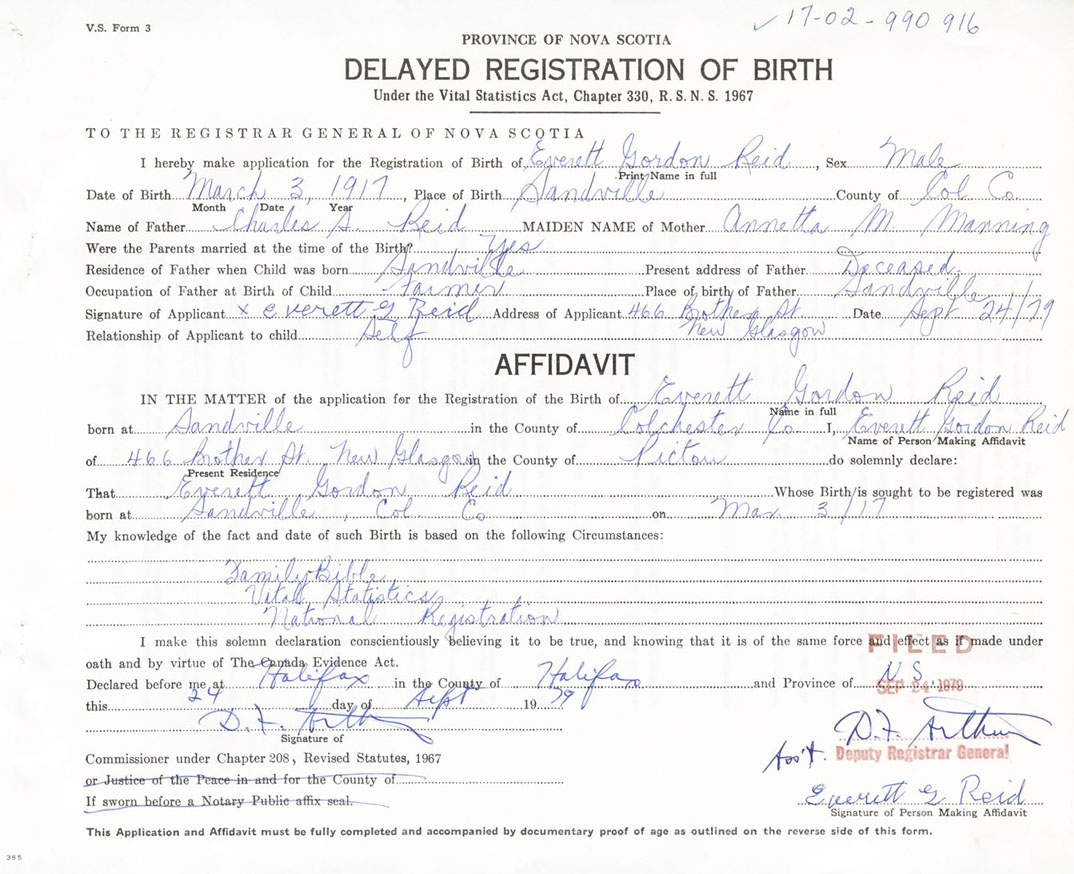 V.S. Form 3
17-02-990 916
PROVINCE OF NOVA SCOTIA
DELAYED REGISTRATION OF BIRTH
Under the Vital Statistics Act, Chapter 330, R.S.N.S. 1967
TO THE REGISTRAR GENERAL OF NOVA SCOTIA
I hereby make application for the Registration of Birth of Everett Gordon Reid, Sex Male
Print Name in full
Date of Birth March 3, 1917, Place of Birth Sandville County of Col Co.
Month Date Year
Name of Father Charles S. Reid MAIDEN NAME of Mother Annetta M. Manning
Were the Parents married at the time of the Birth? Yes
Residence of Father when Child was born Sandville Present address of Father Deceased
Occupation of Father at Birth of Child Farmer Place of birth of Father Sandville
Signature of Applicant x Everett G Reid Address of Applicant 466 Brother St Date Sept 24/79
New Glasgow
Relationship of Applicant to child Self
AFFIDAVIT
IN THE MATTER of the application for the Registration of the Birth of Everett Gordon Reid
Name in full
born at Sandville in the County of Colchester Co. I, Everett Gordon Reid
Name of Person Making Affidavit
of 466 Brother St. New Glasgow in the County of Pictou do solemnly declare:
Present Residence
That Everett Gordon Reid Whose Birth is sought to be registered was
born at Sandville, Col Co on Mar 3/17
My knowledge of the fact and date of such Birth is based on the following Circumstances:
Family Bible
Vital Statistics
National Registration
I make this solemn declaration conscientiously believing it to be true, and knowing that it is of the same force and effect as if made under
FILED
oath and by virtue of The Canada Evidence Act.
Declared before me at Halifax in the County of Halifax and Province of N S
SEP 24 1979
this 24 day of Sept 1979
D.F. Arthur
Signature of
D.F. Arthur
Ass't. Deputy Registrar General
Commissioner under Chapter 208, Revised Statutes, 1967
or Justice of the Peace in and for the County of
If sworn before a Notary Public affix seal.
Everett G Reid
Signature of Person Making Affidavit
This Application and Affidavit must be fully completed and accompanied by documentary proof of age as outlined on the reverse side of this form.
385